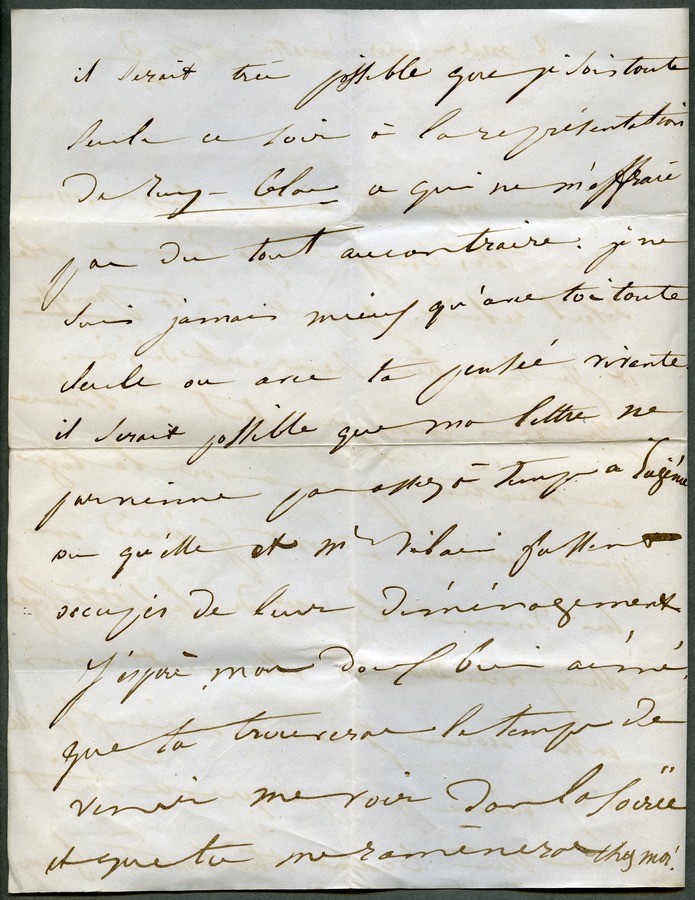 il serait très possible que je sois toute
seule ce soir à la représentation
de Ruy-Blas ce qui ne m'effraie
pas du tout au contraire. je ne
suis jamais mieux qu'avec toi toute
seule ou avec ta pensée vivante.
il serait possible que ma lettre ne
parvienne pas assez à temps à Eugénie
ou qu'elle et Mr Vilain fussent
occupés de leur déménagement
J'espère, mon doux bien aimé,
que tu trouveras le temps de
venir me voir dans la soirée
et que tu me ramèneras chez moi.